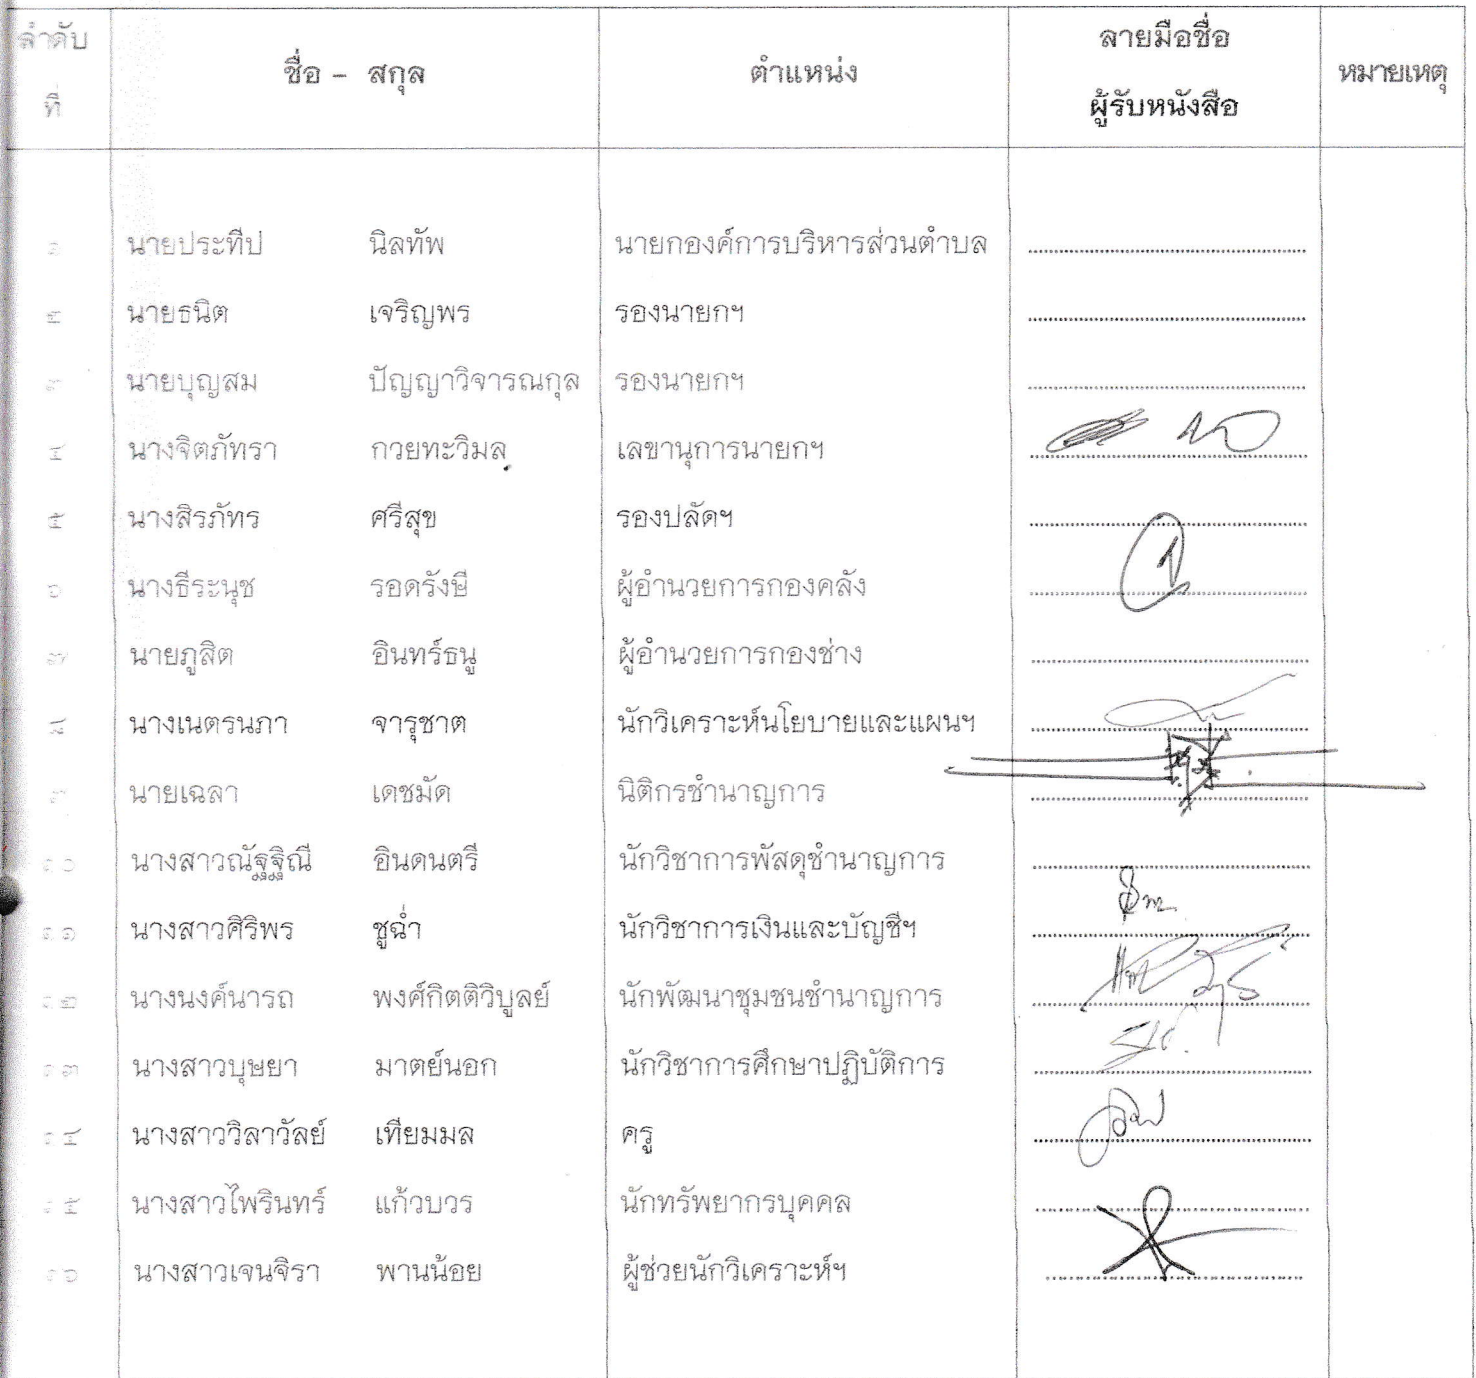 ลำดับที่ ชื่อ - สกุล ตำแหน่ง ลายมือชื่อ ผู้รับหนังสือ หมายเหตุ
๑ นายประทีป นิลทัพ นายกองค์การบริหารส่วนตำบล
๒ นายธนิต เจริญพร รองนายกฯ
๓ นายบุญสม ปัญญาวิจารณกุล รองนายกฯ
๔ นางจิตภัทรา กวยทะวิมล เลขานุการนายกฯ
๕ นางสิรภัทร ศรีสุข รองปลัดฯ
๖ นางธีระนุช รอดรังษี ผู้อำนวยการกองคลัง
๗ นายภูสิต อินทร์ธนู ผู้อำนวยการกองช่าง
๘ นางเนตรนภา จารุชาต นักวิเคราะห์นโยบายและแผนฯ
๙ นายเฉลา เดชมัด นิติกรชำนาญการ
๑๐ นางสาวณัฐฐิณี อินดนตรี นักวิชาการพัสดุชำนาญการ
๑๑ นางสาวศิริพร ชูฉ่ำ นักวิชาการเงินและบัญชีฯ
๑๒ นางนงค์นารถ พงศ์กิตติวิบูลย์ นักพัฒนาชุมชนชำนาญการ
๑๓ นางสาวบุษยา มาตย์นอก นักวิชาการศึกษาปฏิบัติการ
๑๔ นางสาววิลาวัลย์ เทียมมล ครู
๑๕ นางสาวไพรินทร์ แก้วบวร นักทรัพยากรบุคคล
๑๖ นางสาวเจนจิรา พานน้อย ผู้ช่วยนักวิเคราะห์ฯ